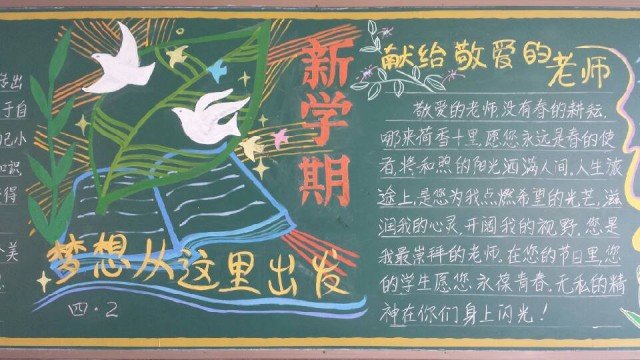 出
于自
己小
知识
得
美
新学期
梦想从这里出发
四·2
献给敬爱的老师
敬爱的老师,没有春的耕耘,
哪来荷雪十里,愿您永远是春的使
者,将和煦的阳光洒满人间,人生旅
途上,是您为我点燃希望的光芒,滋
润我的心灵,开阔我的视野,您是
我最崇拜的老师,在您的节日里,您
的学生愿您,永葆青春,无私的精
神在你们身上闪光!